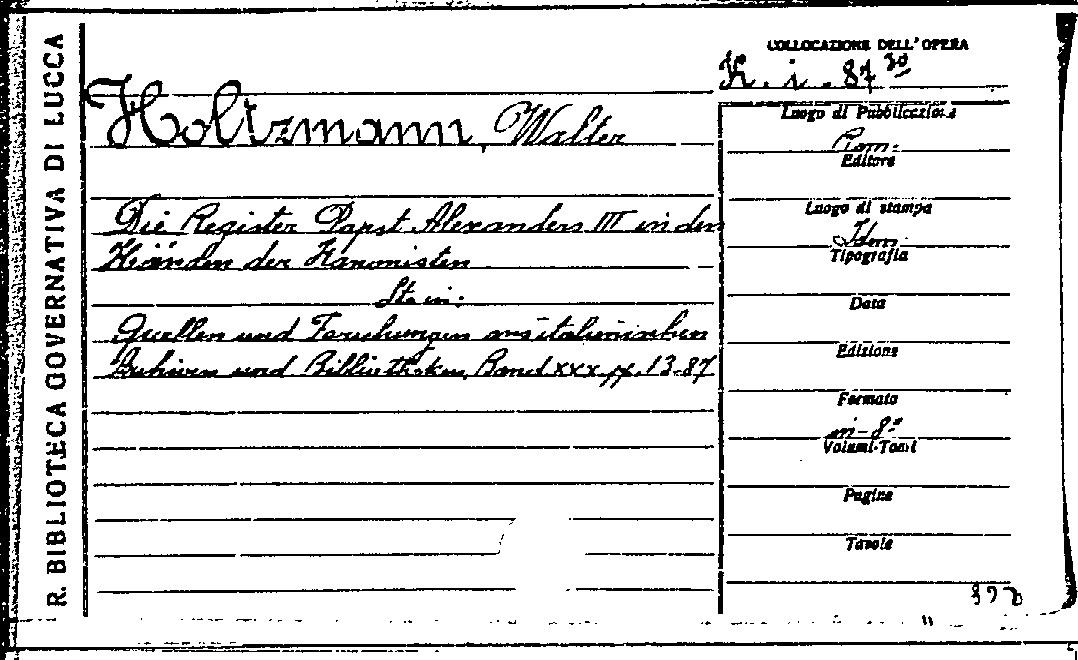 R. BIBLIOTECA GOVERNATIVA DI LUCCA
COLLOCAZIONE DELL'OPERA
K. i. 87 30
Holtzmann, Walter
Luogo di Pubblicazione
Rom.
Editore
Die Register Papst Alexanders III in den
Händen der Kanonisten
Luogo di stampa
Idem
Tipografia
Sta in:
Data
Quellen und Forschungen aus italienischen
Edizione
Archiven und Bibliotheken, Band XXX pp. 13-87
Formato
in-8°
Volumi-Tomi
Pagine
Tavole